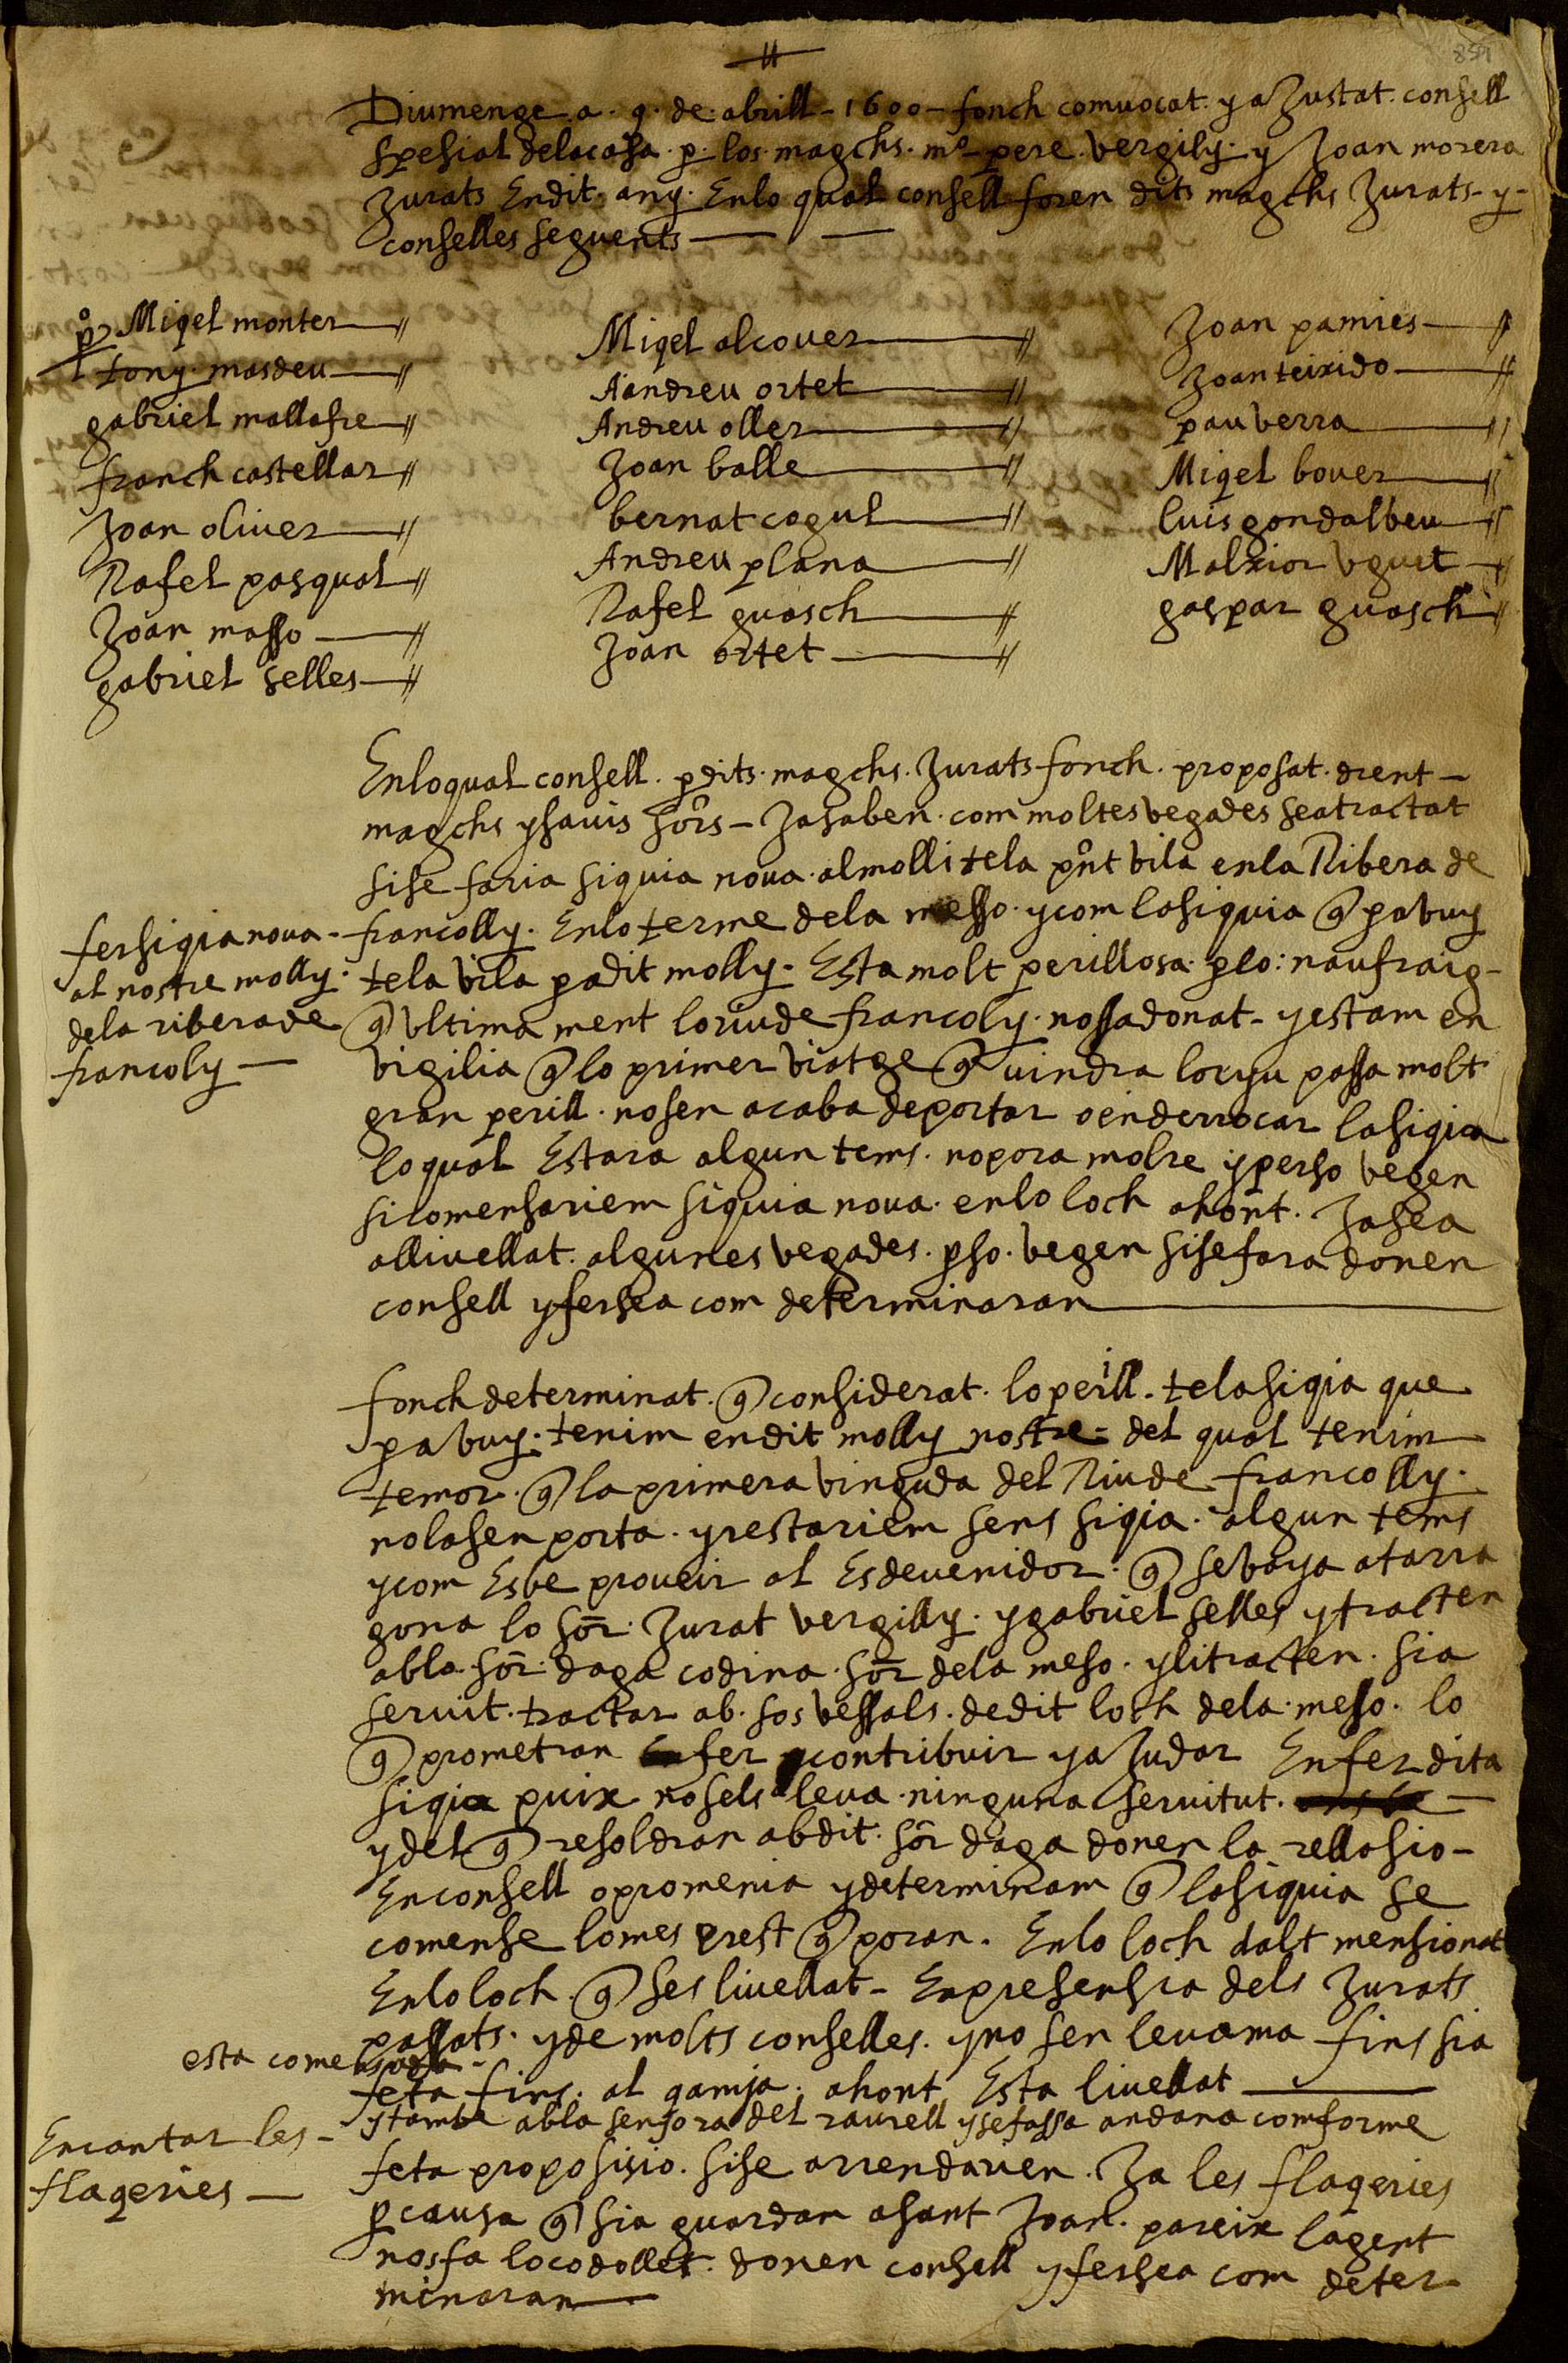 859
Diumenge a . 9 . de abrill - 1600 - fonch comuocat . y aJustat . consell
spesial delacasa . p . los . magchs . mº pere . vergily . y Joan morera
Jurats Endit . any . Enlo qual consell foren dits magchs Jurats - y -
conselles seguents
Miqel monter
tony masdeu
gabriel mallafre
franch castellar
Joan oliuer
Rafel pasqual
Joan masso
gabriel selles
Miqel alcouer
Aandreu ortet
Andreu oller
Joan balle
bernat cogul
Andreu plana
Rafel guasch
Joan ortet
Joan pamies
Joan teixido
pau verra
Miqel bouer
luis gondalbeu
Malxior vguet
gaspar guasch
Enloqual consell . pdits . magchs . Jurats fonch . proposat . dient -
magchs ysauis sors - Jasaben . com moltes vegades seatractat
sise faria siquia noua . almolli tela pnt vila enla Ribera de
francolly . Enlo terme dela messo . ycom lasiquia q pabuy
tela vila padit molly . Esta molt perillosa . plo : naufraig -
q vltima ment loriude francoly . nossadonat - yestam en
vigilia q lo primer viatge q uindra loryu passa molt
gran perill . nosen acaba deportar oenderrocar lasiqia
loqual Estara algun tems . nopora molre yperso vegen
sicomensariem siquia noua . enlo loch ahont . Jasea
alliuellat . algunes vegades . pso . vegen sisefara donen
consell yfersea com determinaran
fersiqia noua -
al nostre molly .
dela riberade
francoly
fonch determinat . q considerat . loperill . telasiqia que
pabuy . tenim endit molly nostre - del qual tenim
temor . q la primera vinguda del Riude francolly .
nolasen porta . yrestariem sens siqia . algun tems
ycom Esbe proueir al Esdeuenidor . q sevaya atarra
gona lo sor . Jurat vergilly . ygabriel selles ytracten
abla . sor . daga codina . sor dela meso . ylitracten . sia
seruit . tractar ab . sos vessals . dedit loch dela . messo . lo
q prometran fer ycontribuir yaJudar Enfer dita
siqia puix nosels leua . ninguna seruitut .
ydel q resoldran abdit . sor daga donen la rellasio -
Enconsell opromenia ydeterminam q lasiquia se
comense lomes prest q poran . Enlo loch dalt mensionat
Enloloch . q ses liuellat - Enpresensia dels Jurats
passats . yde molts conselles . yno sen leuama fins sia
esta comensada -
feta fins . al qamia . ahont Esta liuellat
ytambe abla senyora del raurell ysefassa andana comforme
Encantar les -
flaqeries
feta proposisio . sise arrendarien . Ja les flaqeries
pcausa q sia guardan asant Joan . pareix lagent
nosfa locodollet . donen consell yfersea com deter
minaran